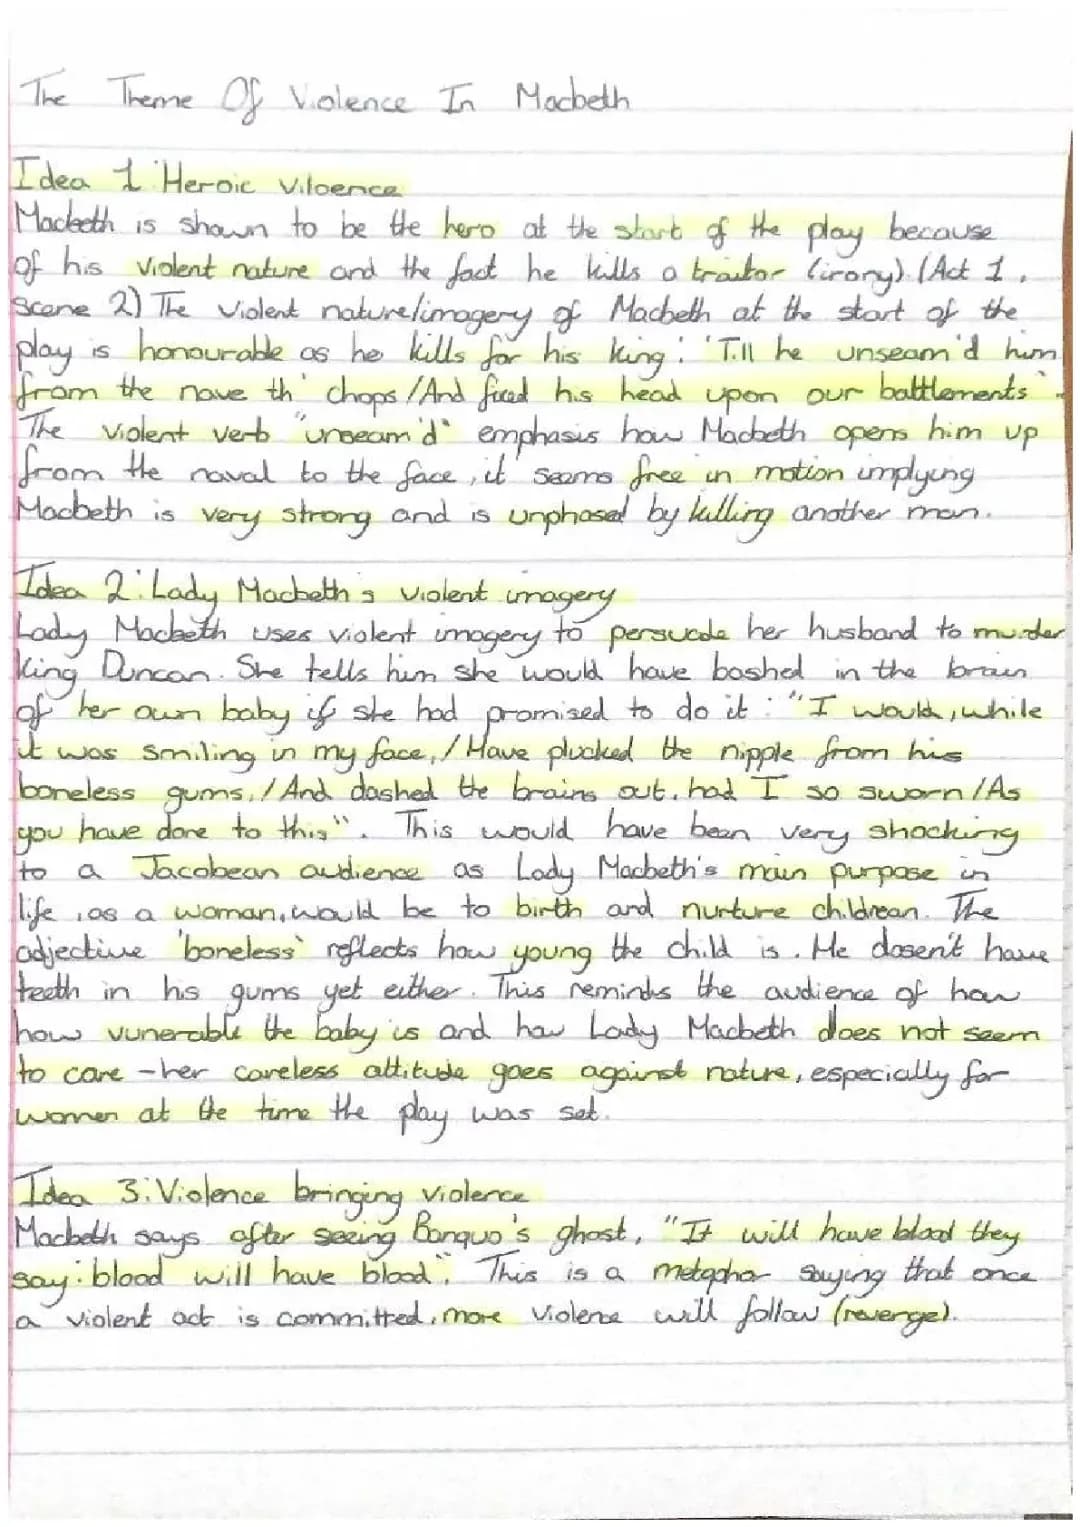 The Theme Of Violence In Macbeth
Idea 1: Heroic viloence
Macbeth is shown to be the hero at the start of the play because
of his violent nature and the fact he kills a traitor (irony). (Act 1,
scene 2) The violent nature/imagery of Macbeth at the start of the
play is honourable as he kills for his king: 'Till he unseam'd him
from the nave th' chops/And fixed his head upon our battlements".
The violent verb "unseam'd" emphasis how Macbeth opens him up
from the naval to the face, it seems free in motion implying
Macbeth is very strong and is unphased by killing another man.
Idea 2: Lady Macbeth's violent imagery
Lady Macbeth uses violent imagery to persuade her husband to murder
King Duncan. She tells him she would have bashed in the brain
of her own baby if she had promised to do it: "I would, while
it was smiling in my face,/Have plucked the nipple from his
boneless gums,/And dashed the brains out, had I so sworn/As
you have done to this". This would have been very shocking
to a Jacobean audience as Lady Macbeth's main purpose in
life, as a woman, would be to birth and nurture childrean. The
adjective 'boneless' reflects how young the child is. He dosen't have
teeth in his gums yet either. This reminds the audience of how
how vunerable the baby is and how Lady Macbeth does not seem
to care - her careless attitude goes against nature, especially for
women at the time the play was set.
Idea 3: Violence bringing violence
Macbeth says after seeing Banquo's ghost, "It will have blood they
say: blood will have blood". This is a metaphor saying that once
a violent act is committed, more violence will follow (revenge).